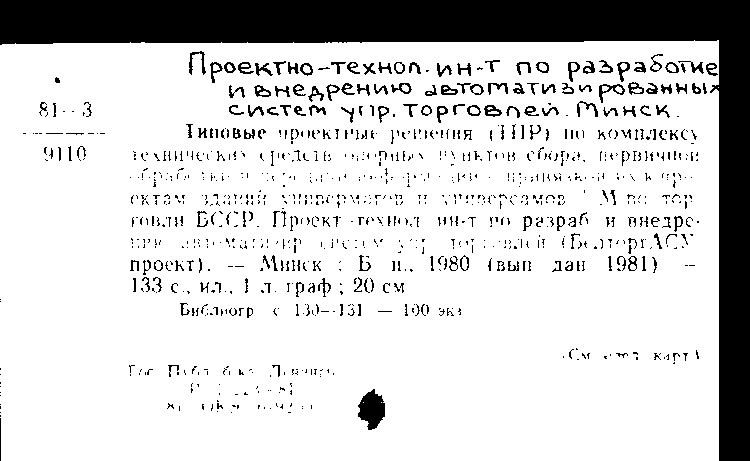 Проектно-технол. ин-т по разработке
и внедрению автоматизированных
систем упр. торговлей. Минск.
81-3
9110
Типовые проектные решения (ТПР) по комплексу
технических средств опорных пунктов сбора, первичной
обработки и передачи информации с привязкой их к про-
ектам зданий универмагов и универсамов / М-во тор-
говли БССР. Проект.-технол. ин-т по разраб. и внедре-
нию автоматизир. систем упр. торговлей (БелторгАСУ
проект). — Минск : Б. и., 1980 (вып. дан. 1981) —
133 с., ил., 1 л. граф ; 20 см
Библиогр. с. 130—131 — 100 экз
(См. след. карт.)
Гос. Публ. б-ка Ленингр.